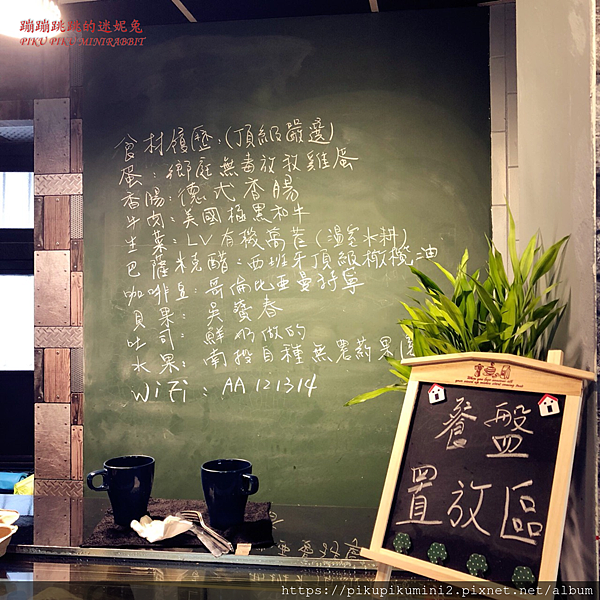 蹦蹦跳跳的迷妮兔
PIKU PIKU MINIRABBIT
食材履歷:(頂級嚴選)
蛋:鄉庭無毒放牧雞蛋
香腸:德式香腸
牛肉:美國極黑和牛
生菜:LV有機萵苣(溫室水耕)
巴薩米克醋:西班牙頂級橄欖油
咖啡豆:哥倫比亞曼特寧
貝果:吳寶春
吐司:鮮奶做的
水果:南投自種無農藥果園
WiFi:AA121314
餐盤
置放區
https://pikupikumini2.pixnet.net/album